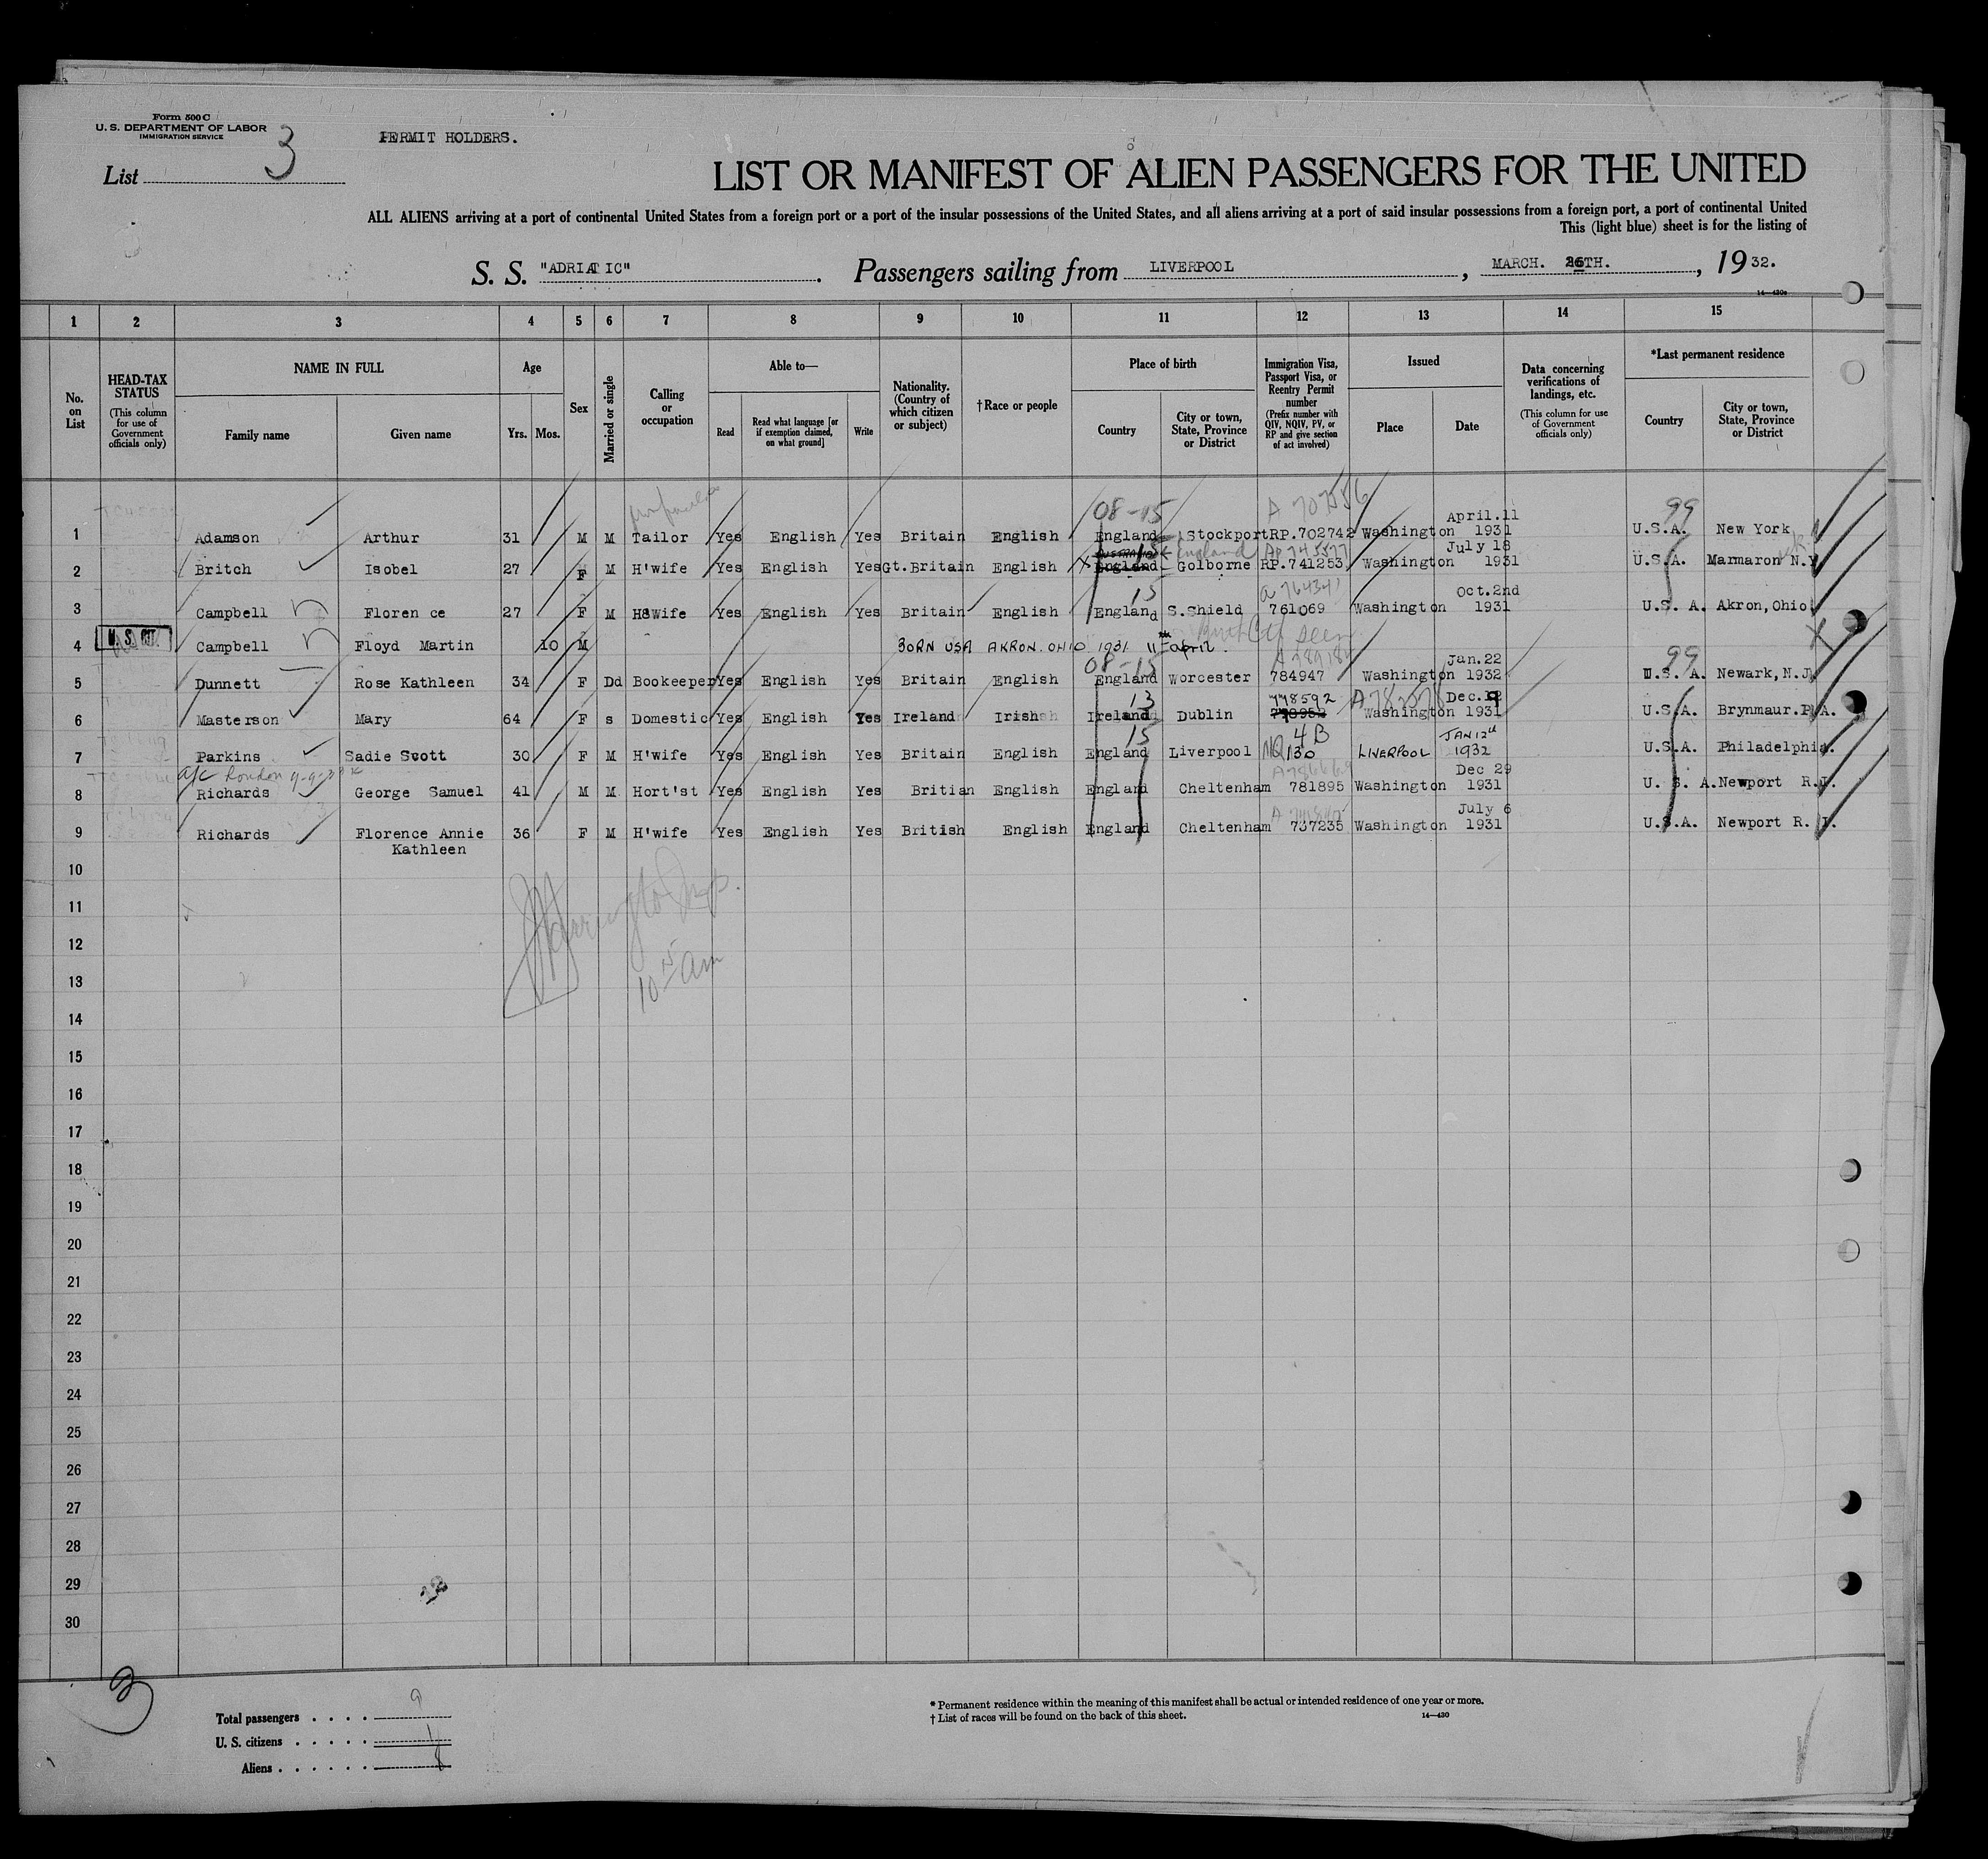 Form 500 C
U. S. DEPARTMENT OF LABOR
IMMIGRATION SERVICE
List 3
PERMIT HOLDERS.
LIST OR MANIFEST OF ALIEN PASSENGERS FOR THE UNITED
ALL ALIENS arriving at a port of continental United States from a foreign port or a port of the insular possessions of the United States, and all aliens arriving at a port of said insular possessions from a foreign port, a port of continental United
This (light blue) sheet is for the listing of
S. S. "ADRIATIC" . Passengers sailing from LIVERPOOL , MARCH. 26TH. , 19 32.
1 2 3 4 5 6 7 8 9 10 11 12 13 14 15
No. on List
HEAD-TAX STATUS
(This column for use of Government officials only)
NAME IN FULL
Family name Given name
Age
Yrs. Mos.
Sex
Married or single
Calling or occupation
Able to—
Read
Read what language [or if exemption claimed, on what ground]
Write
Nationality. (Country of which citizen or subject)
†Race or people
Place of birth
Country
City or town, State, Province or District
Immigration Visa, Passport Visa, or Reentry Permit number
(Prefix number with QIV, NQIV, PV, or RP and give section of act involved)
Issued
Place Date
Data concerning verifications of landings, etc.
(This column for use of Government officials only)
*Last permanent residence
Country
City or town, State, Province or District
08-15 A 99
April.11
1 Adamson Arthur 31 M M Tailor Yes English Yes Britain English England Stockport RP.702742 Washington 1931 U.S.A. New York
15 England July 18
2 Britch Isobel 27 F M H'wife Yes English Yes Gt.Britain English England Golborne RP.741253 Washington 1931 U.S.A. Marmaron N.Y
15 Oct.2nd
3 Campbell Floren ce 27 F M H8wife Yes English Yes Britain English England S.Shield 761069 Washington 1931 U.S. A. Akron,Ohio
U. S. CIT.
4 Campbell Floyd Martin 10 M BORN USA AKRON. OHIO 1931 11th april. Birth Ctf seen X
08-15 Jan.22 99
5 Dunnett Rose Kathleen 34 F Dd Bookeeper Yes English Yes Britain English England Worcester 784947 Washington 1932 U.S. A. Newark,N.J
13 778592 Dec.
6 Masterson Mary 64 F s Domestic Yes English Yes Ireland Irish Ireland Dublin Washington 1931 U.S.A. Brynmaur.P.A.
15 4B JAN 12th
7 Parkins Sadie Scott 30 F M H'wife Yes English Yes Britain English England Liverpool NQ 130 LIVERPOOL 1932 U.S.A. Philadelphia.
a/c London Dec 29
8 Richards George Samuel 41 M M Hort'st Yes English Yes Britian English England Cheltenham 781895 Washington 1931 U. S. A. Newport R.I.
July 6
9 Richards Florence Annie 36 F M H'wife Yes English Yes British English England Cheltenham 737235 Washington 1931 U.S.A. Newport R. I.
Kathleen
10
11
12
13
10 15 am
14
15
16
17
18
19
20
21
22
23
24
25
26
27
28
29
30
3
Total passengers . . . . 9
U. S. citizens . . . . . 1
Aliens . . . . . . 8
* Permanent residence within the meaning of this manifest shall be actual or intended residence of one year or more.
† List of races will be found on the back of this sheet.
14—430